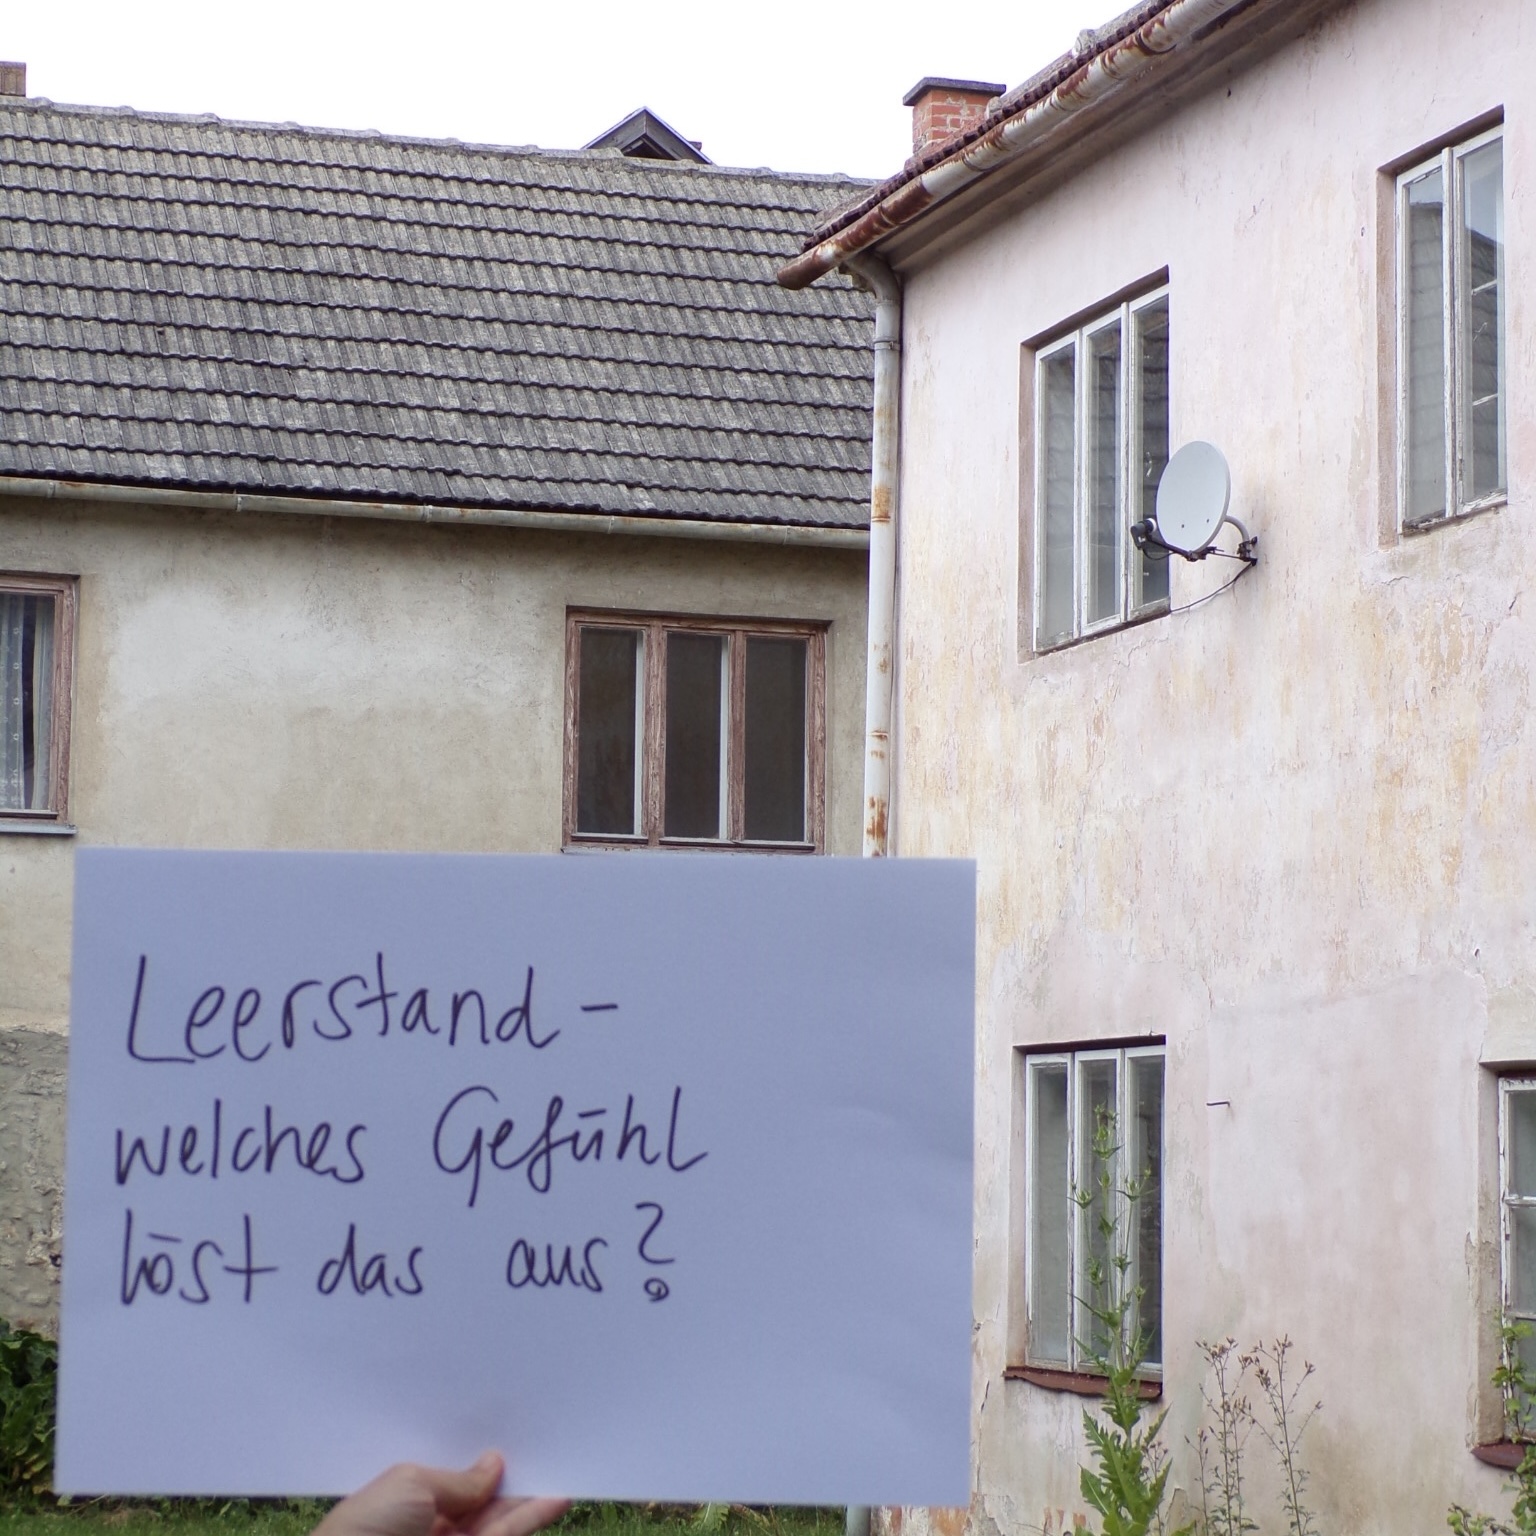 Leerstand -
welches Gefühl
löst das aus?